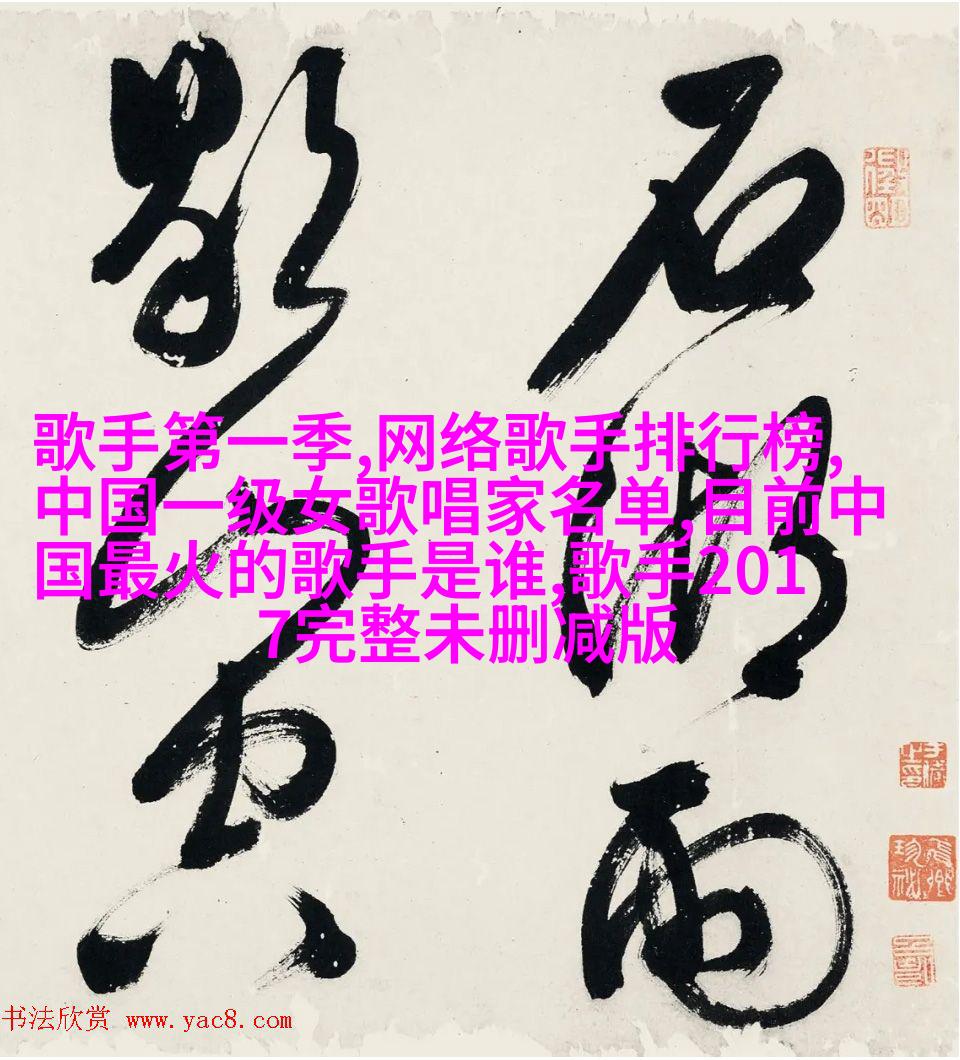 石湖雨
歇山空
歌手第一季,网络歌手排行榜,
中国一级女歌唱家名单,目前中
国最火的歌手是谁,歌手201
7完整未删减版
书法欣赏 www.yac8.com